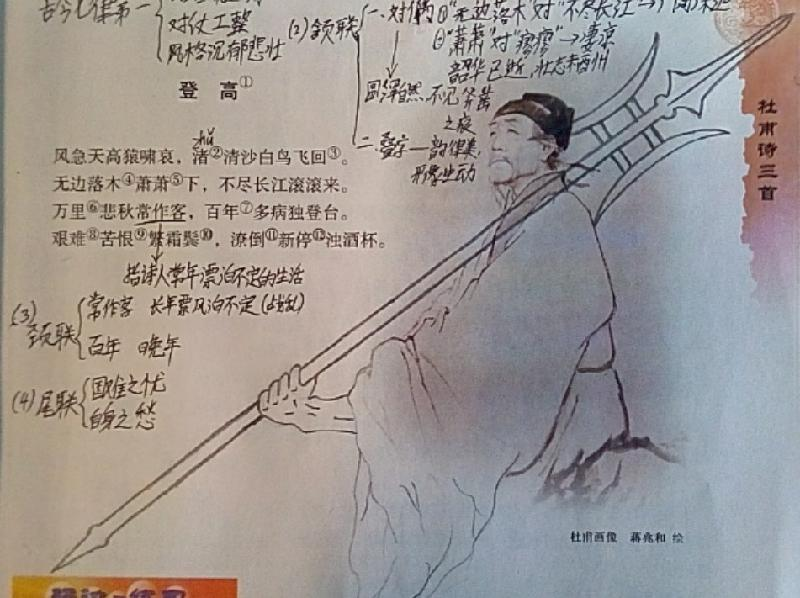 古今七律第一
对仗工整
风格沉郁悲壮
(2)颔联
一、对偶①"无边落木"对"不尽长江"→
②"萧萧"对"滚滚"→凄凉
韶华已逝,壮志未酬
之哀
二、叠字—韵律美,
形象生动
登 高①
渚②
风急天高猿啸哀,渚②清沙白鸟飞回③。
无边落木④萧萧⑤下,不尽长江滚滚来。
万里⑥悲秋常作客,百年⑦多病独登台。
艰难⑧苦恨⑨繁霜鬓⑩,潦倒⑪新停⑫浊酒杯。
指诗人常年漂泊不定的生活
(3)颈联
常作客 长年飘风泊不定(战乱)
百年 晚年
(4)尾联
国难之忧
自身之愁
杜甫诗三首
杜甫画像 蒋兆和 绘